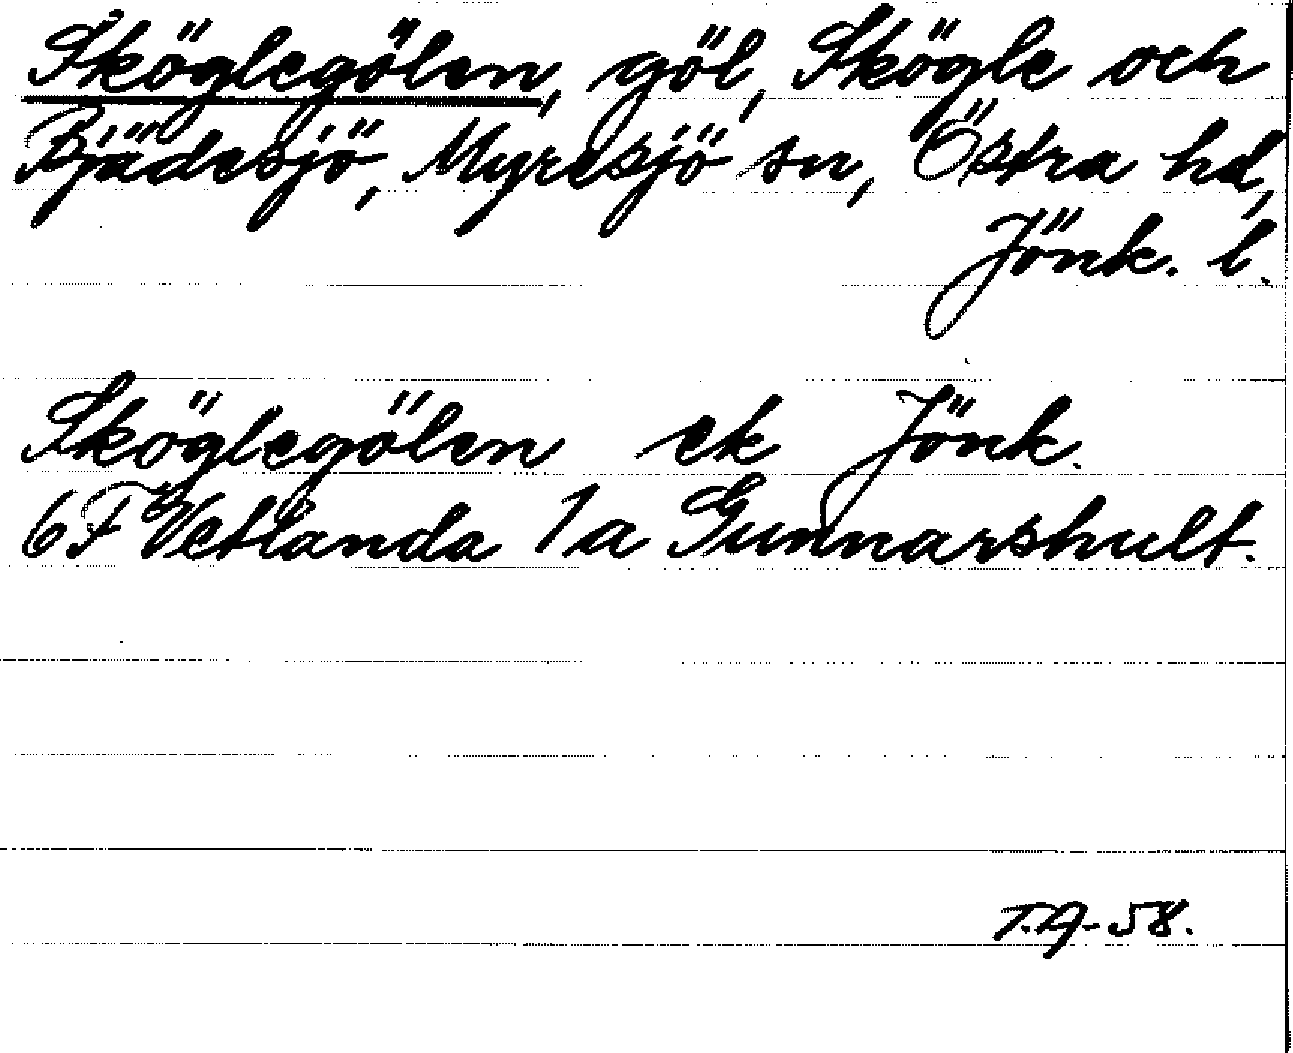 Sköglegölen, göl, Skögle och
Bjädesjö, Myresjö sn, Östra hd,
Jönk. l.
Sköglegölen ek Jönk.
6F Vetlanda 1a Gunnarshult.
T.A-58.